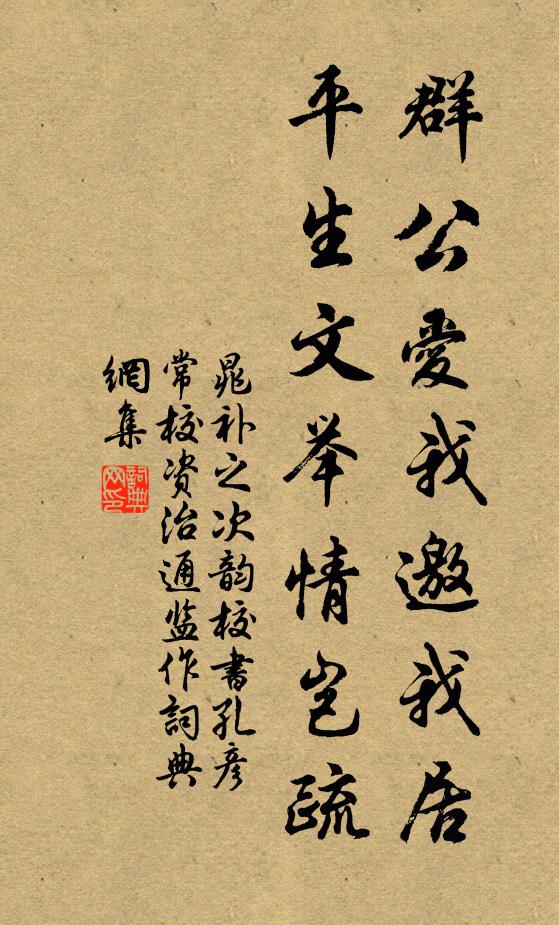 群公愛我邀我居
平生文举情岂疏
晁补之次韵校書孔彦
常校资治通监作詞典
網集
詞典
网印